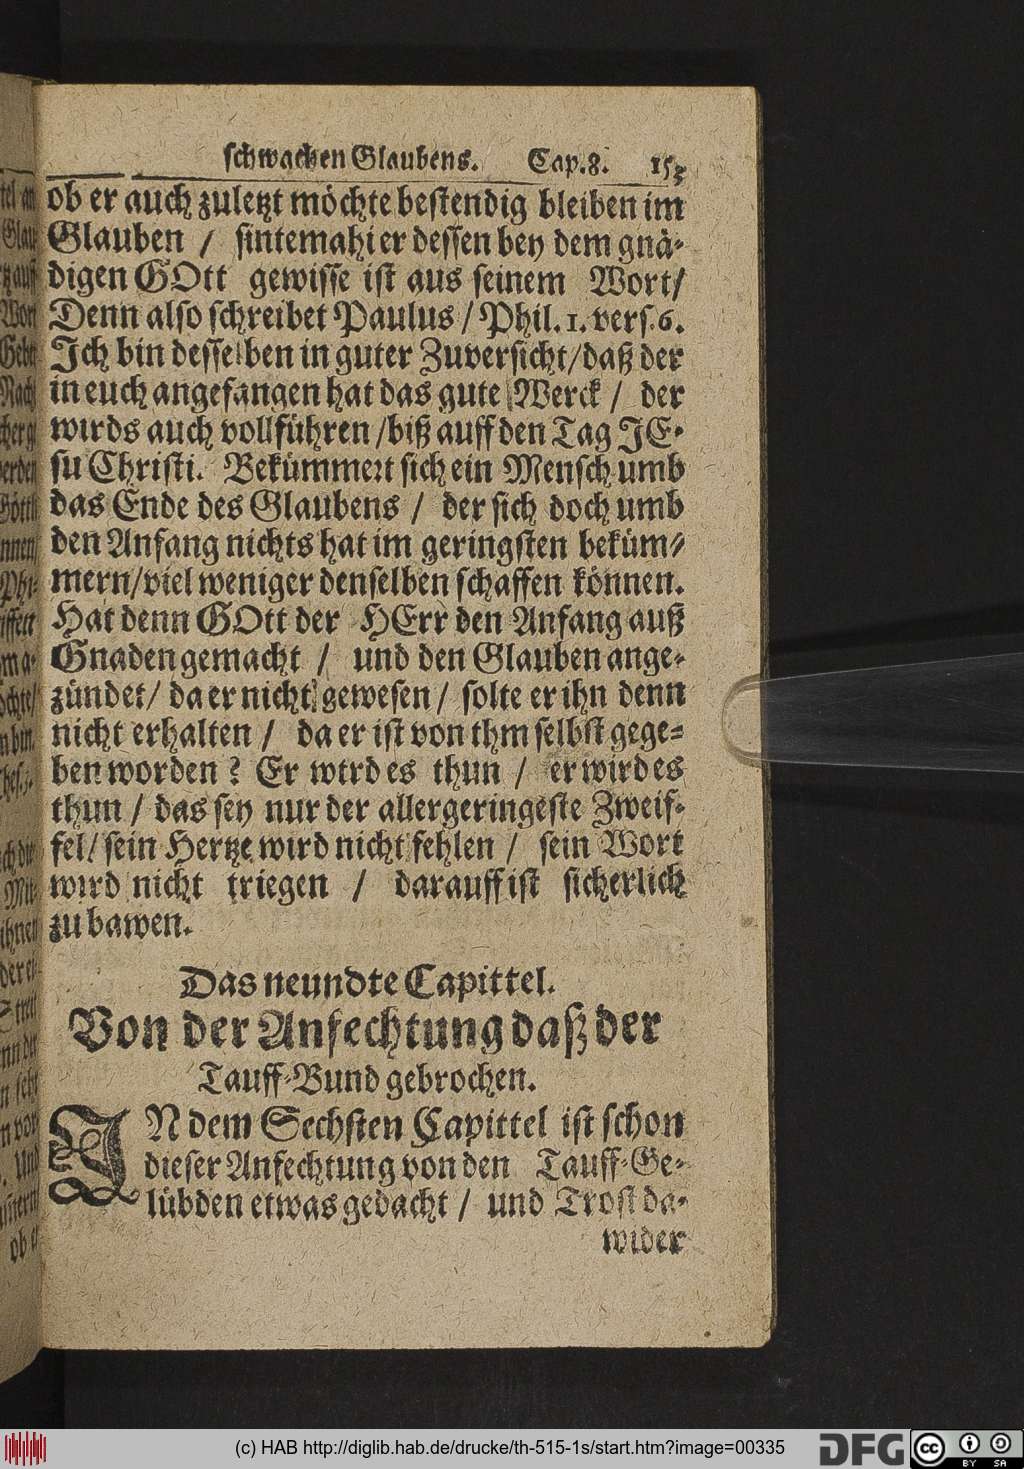 schwachen Glaubens. Cap.8. 153
ob er auch zuletzt möchte bestendig bleiben im
Glauben / sintemahl er dessen bey dem gnä-
digen GOtt gewisse ist aus seinem Wort/
Denn also schreibet Paulus / Phil. 1. vers. 6.
Ich bin desselben in guter Zuversicht/daß der
in euch angefangen hat das gute Werck / der
wirds auch vollführen /biß auff den Tag JE-
su Christi. Bekümmert sich ein Mensch umb
das Ende des Glaubens / der sich doch umb
den Anfang nichts hat im geringsten beküm-
mern/viel weniger denselben schaffen können.
Hat denn GOtt der HErr den Anfang auß
Gnaden gemacht / und den Glauben ange-
zündet/ da er nicht gewesen / solte er ihn denn
nicht erhalten / da er ist von ihm selbst gege-
ben worden ? Er wird es thun / er wird es
thun / das sey nur der allergeringeste Zweif-
fel/ sein Hertze wird nicht fehlen / sein Wort
wird nicht triegen / darauff ist sicherlich
zu bawen.
Das neundte Capittel.
Von der Anfechtung daß der
Tauff-Bund gebrochen.
IN dem Sechsten Capittel ist schon
dieser Anfechtung von den Tauff-Ge-
lübden etwas gedacht / und Trost da-
wider
(c) HAB http://diglib.hab.de/drucke/th-515-1s/start.htm?image=00335
DFG
cc BY SA